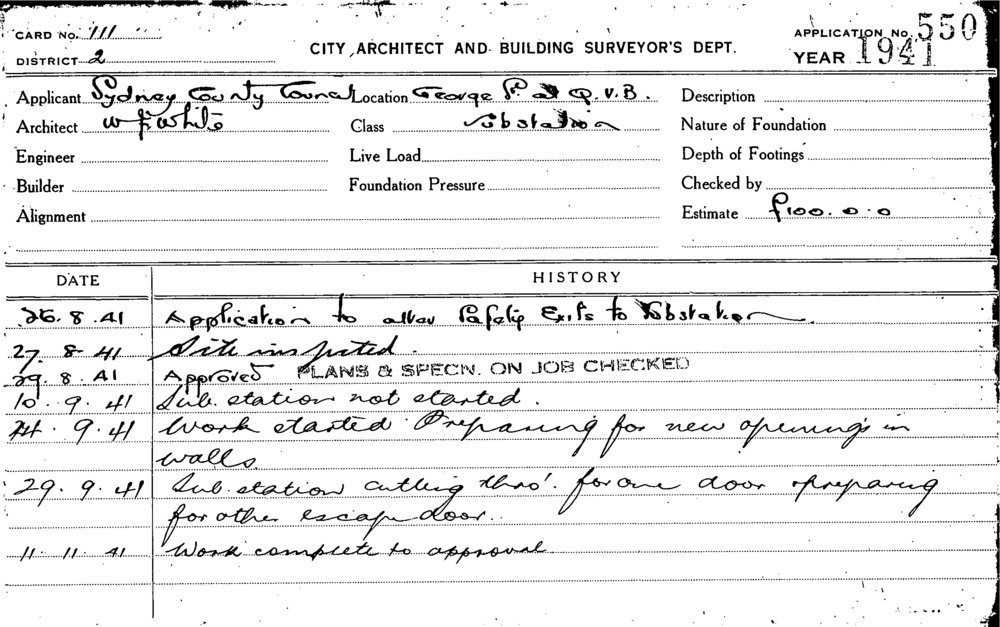 CARD No. 111
DISTRICT 2
CITY ARCHITECT AND BUILDING SURVEYOR'S DEPT.
APPLICATION No. 550
YEAR 1941
Applicant Sydney County Council Location George St. at Q.V.B. Description
Architect W F White Class Substation Nature of Foundation
Engineer Live Load Depth of Footings
Builder Foundation Pressure Checked by
Alignment Estimate £100.0.0
DATE HISTORY
26.8.41 Application to alter Safety Exits to Substation
27.8.41 Site inspected.
29.8.41 Approved PLANS & SPECN. ON JOB CHECKED
10.9.41 Sub.station not started.
24.9.41 Work started Preparing for new openings in
walls
29.9.41 Sub.station cutting thro'. for one door & preparing
for other escape door.
11.11.41 Work complete to approval